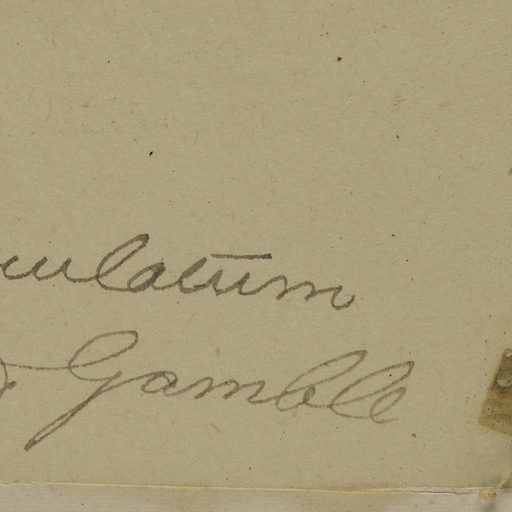 ulatum
Gamble